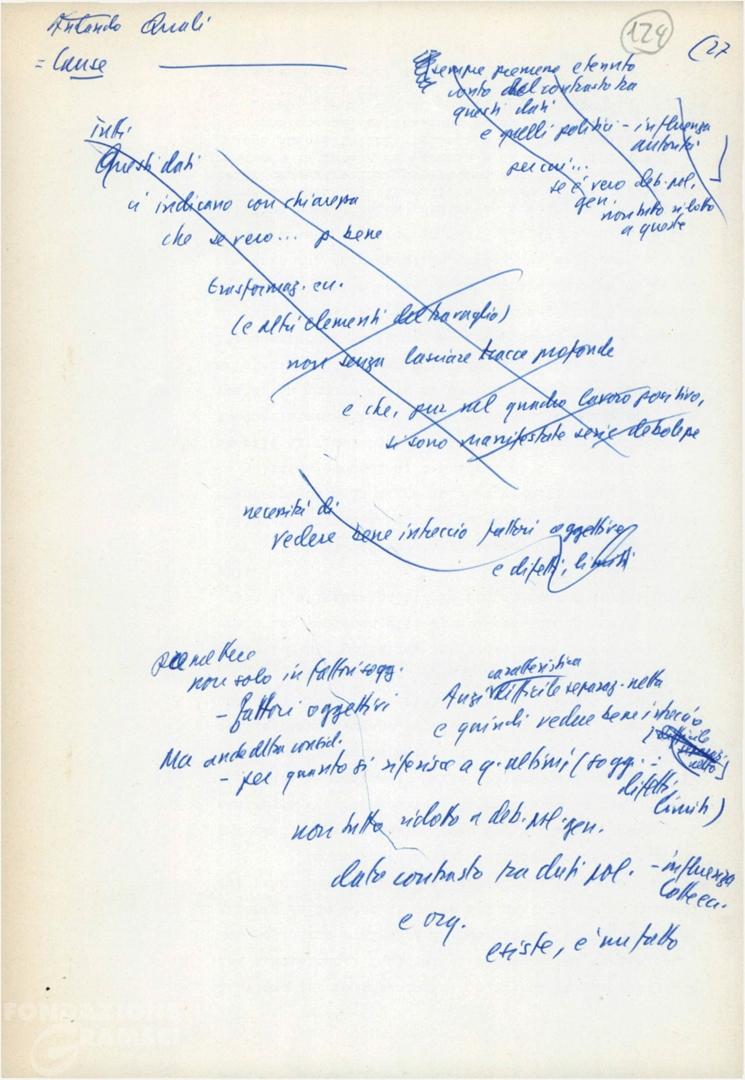 Quali
= Cause
124
(27
sempre premene e tenuto
conto del contrasto tra
questi dati
e quelli politici - influenza
autorità
per cui...
se è vero deb. pol.
gen.
non tutto ridotto
a queste
tutti
Questi dati
ci indicano con chiarezza
che se vero... p. bene
trasformaz. ec.
(e altri elementi del travaglio)
non senza lasciare tracce profonde
e che, pur nel quadro lavoro positivo,
si sono manifestate serie debolezze
necessità di
vedere bene intreccio fattori oggettivi
e difetti, limiti
premettere
non solo in fattori sogg.
- fattori oggettivi
caratteristica
Anzi difficile separaz. netta
e quindi vedere bene intreccio
difficile
separaz.
netta
Ma anche altra consid.
- per quanto si riferisce a q. ultimi (sogg. :
difetti
limiti)
non tutto ridotto a deb. pol. gen.
dato contrasto tra dati pol. - influenza
e org.
esiste, è un fatto
FONDAZIONE
GRAMSCI